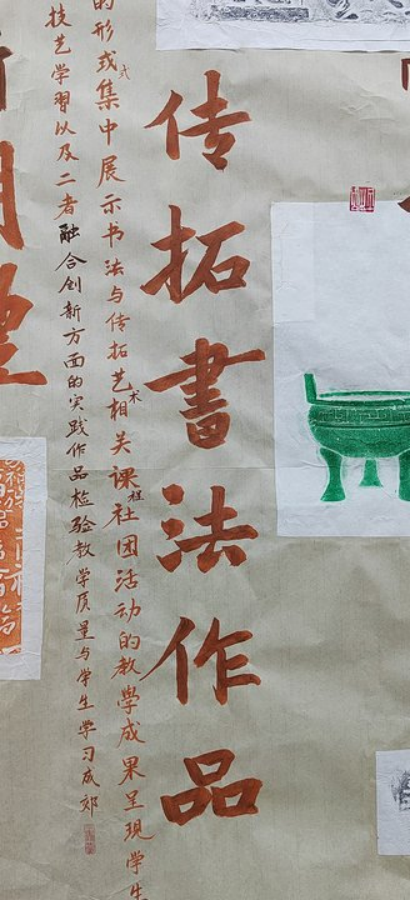 传拓書法作品
的形或式集中展示书法与传拓艺术相关课程社团活动的教学成果呈现学生
技艺学習以及二者融合创新方面的实践作品检验教学质量与学生学习成